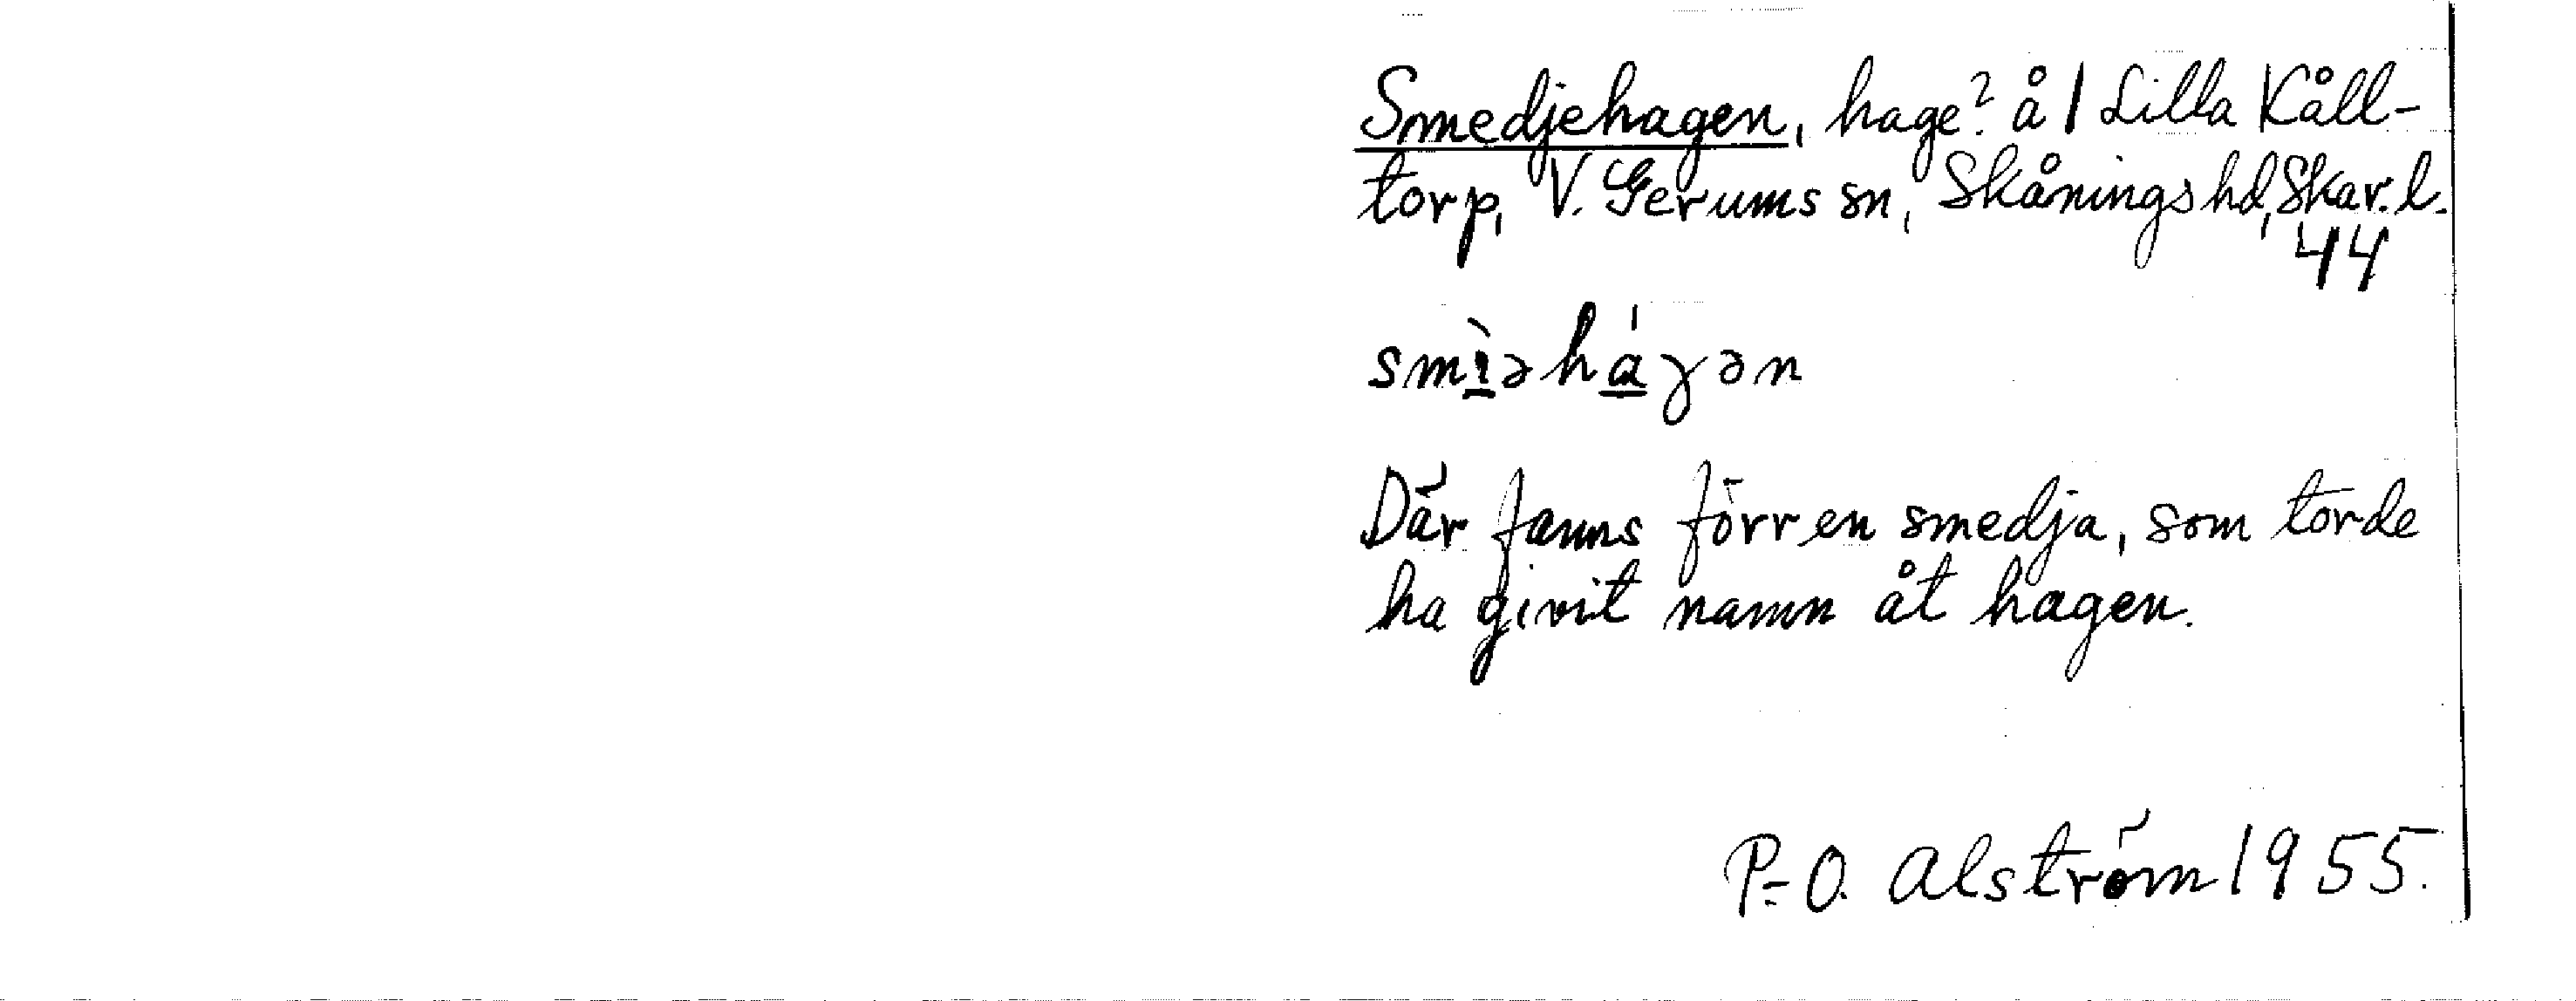 Smedjehagen, hage? å 1 Lilla Kåll-
torp, V. Gerums sn, Skånings hd, Skar. l.
44
smìəháγən
Där fanns förr en smedja, som torde
ha givit namn åt hagen.
P.-O. Alström 1955.